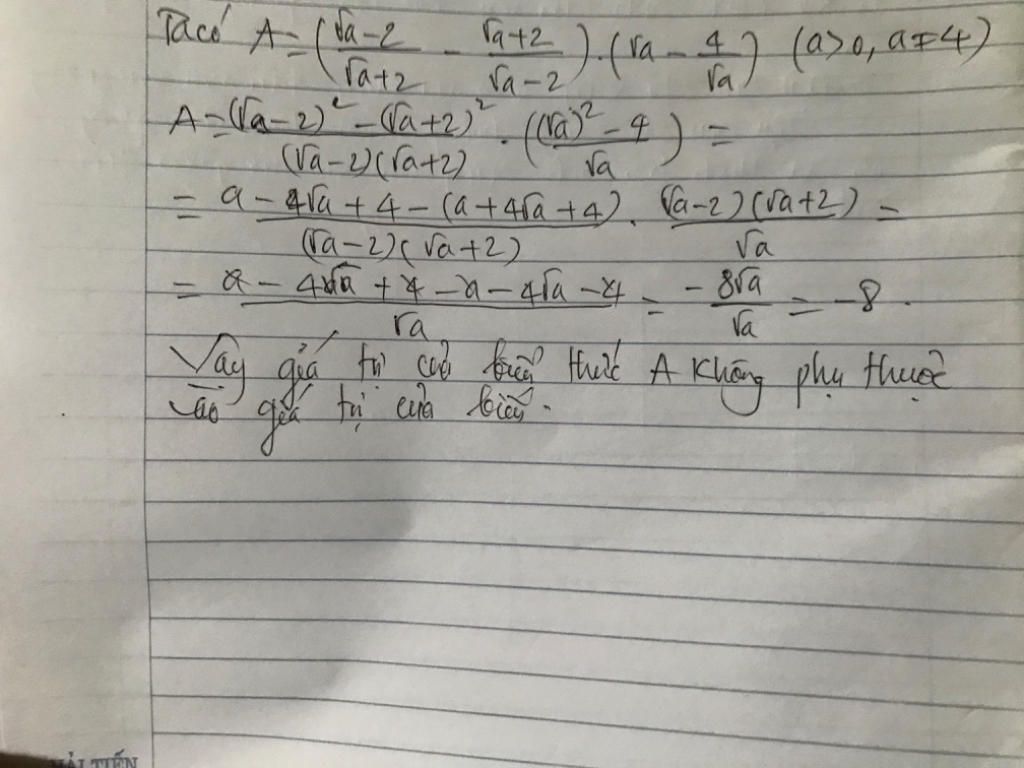 Ta có A = (√a-2/√a+2 - √a+2/√a-2).(√a - 4/√a) (a>0, a≠4)
A = (√a-2)² - (√a+2)²/(√a-2)(√a+2) . ((√a)² - 4/√a) =
= a - 4√a + 4 - (a + 4√a + 4)/(√a-2)(√a+2) . (√a-2)(√a+2)/√a =
= a - 4√a + 4 - a - 4√a - 4/√a = -8√a/√a = -8.
Vậy giá trị của biểu thức A không phụ thuộc
vào giá trị của biến.
HẢI TIẾN